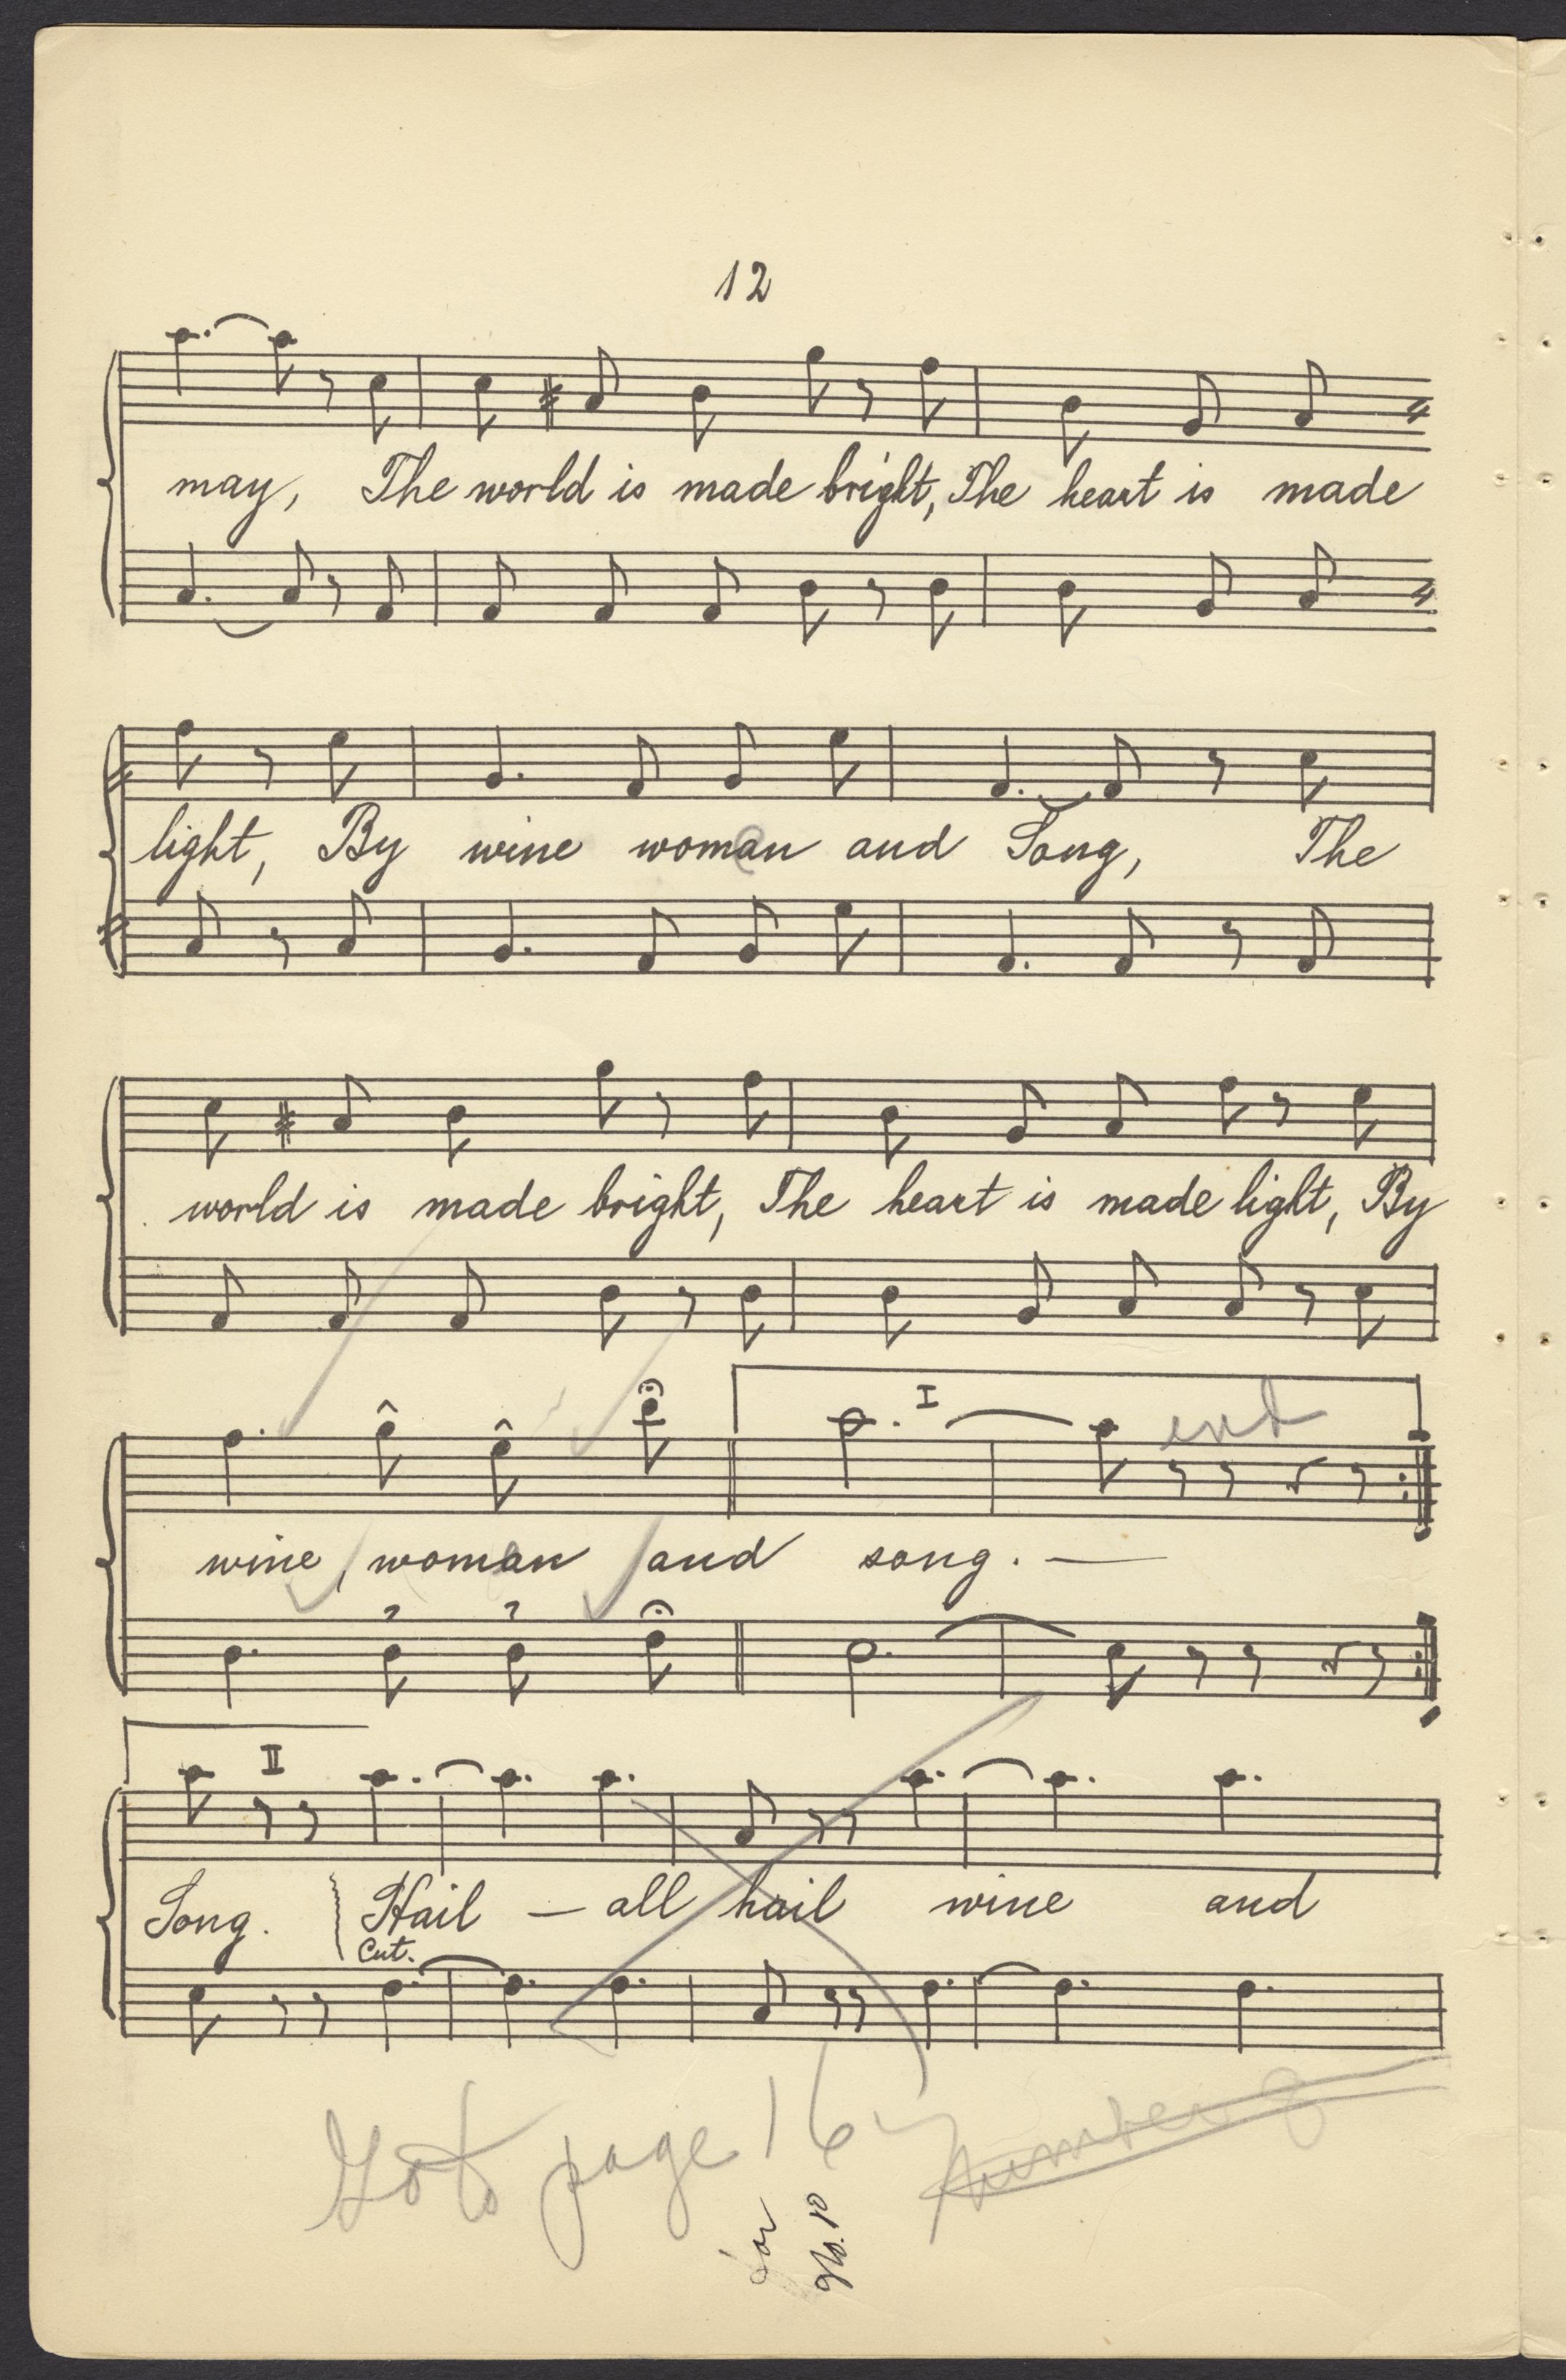 12
may, The world is made bright, The heart is made
light, By wine woman and Song, The
world is made bright, The heart is made light, By
I end
wine, woman and song. —
II
Song. Hail — all hail wine and
Cut.
Go to page 16
Number 8
for
No. 10